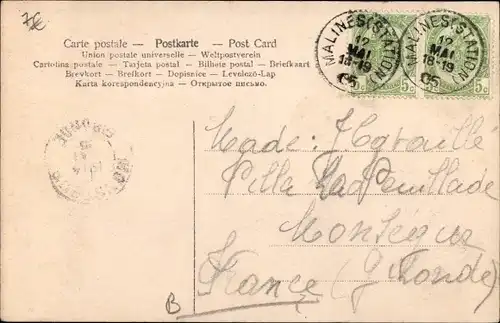 Carte postale – Postkarte – Post Card
Union postale universelle – Weltpostverein
Cartolina postale – Tarjeta postal – Bilhete postal – Briefkaart
Brevkort – Brefkort – Dopisnice – Levelező-Lap
Karta korespondencyjna – Открытое письмо.
MALINES (STATION)
12
MAI
18-19
05
MALINES (STATION)
12
MAI
18-19
05
5c 5c
5c 5c
GIRONDE
Made
Villa La Feuillade
Monségur
France (Gironde)
B